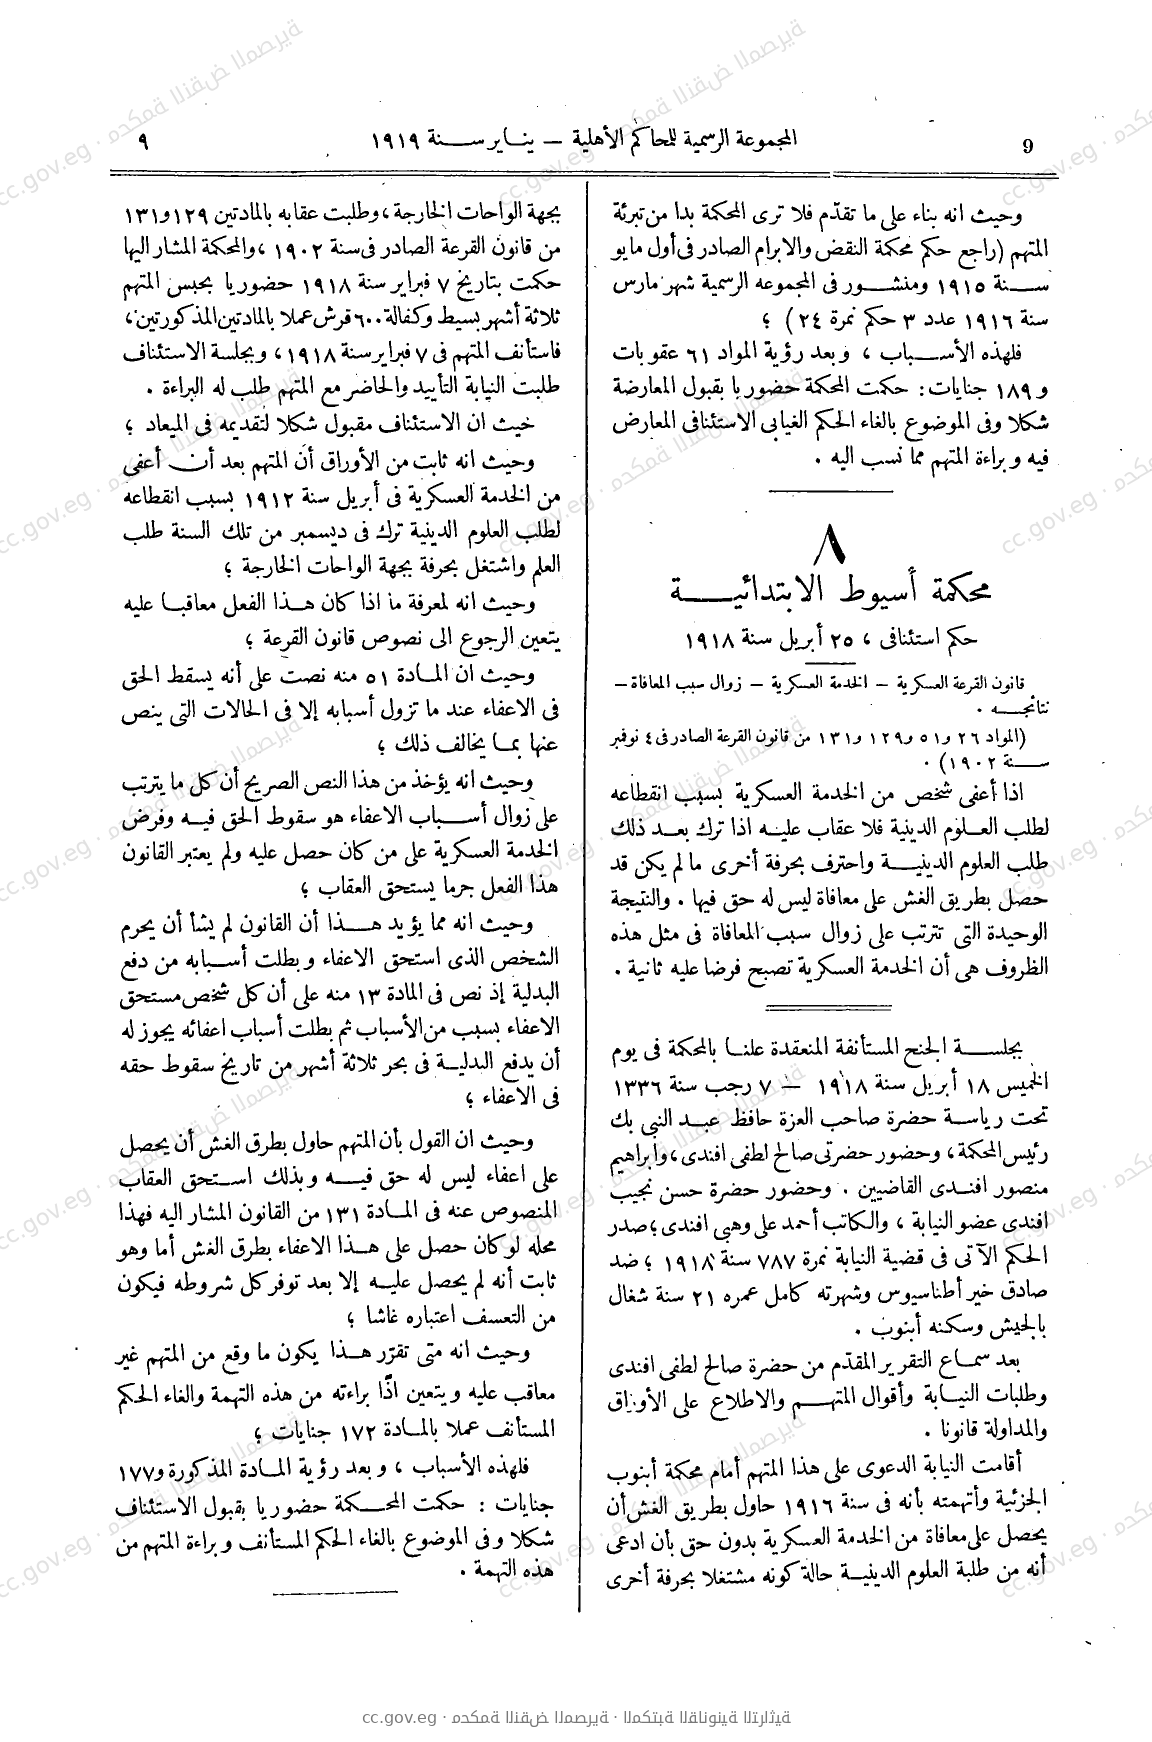 9
المجموعة الرسمية للمحاكم الأهلية — يناير سنة ١٩١٩
٩
وحيث انه بناء على ما تقدّم فلا ترى المحكمة بدا من تبرئة
المتهم (راجع حكم محكمة النقض والابرام الصادر فى أول مايو
سنة ١٩١٥ ومنشور فى المجموعه الرسمية شهر مارس
سنة ١٩١٦ عدد ٣ حكم نمرة ٢٤) ؛
فلهذه الأسباب ، وبعد رؤية المواد ٦١ عقوبات
و ١٨٩ جنايات : حكمت المحكمة حضوريا بقبول المعارضة
شكلا وفى الموضوع بالغاء الحكم الغيابى الاستئنافى المعارض
فيه وبراءة المتهم مما نسب اليه .
٨
محكمة أسيوط الابتدائية
حكم استئنافى ، ٢٥ أبريل سنة ١٩١٨
قانون القرعة العسكرية — الخدمة العسكرية — زوال سبب المعافاة —
نتائجه .
(المواد ٢٦ و ٥١ و ١٢٩ و ١٣١ من قانون القرعة الصادر فى ٤ نوفمبر
سنة ١٩٠٢) .
اذا أعفى شخص من الخدمة العسكرية بسبب انقطاعه
لطلب العلوم الدينية فلا عقاب عليه اذا ترك بعد ذلك
طلب العلوم الدينية واحترف بحرفة أخرى ما لم يكن قد
حصل بطريق الغش على معافاة ليس له حق فيها . والنتيجة
الوحيدة التى تترتب على زوال سبب المعافاة فى مثل هذه
الظروف هى أن الخدمة العسكرية تصبح فرضا عليه ثانية .
بجلسة الجنح المستأنفة المنعقدة علنا بالمحكمة فى يوم
الخميس ١٨ أبريل سنة ١٩١٨ — ٧ رجب سنة ١٣٣٦
تحت رياسة حضرة صاحب العزة حافظ عبد النبى بك
رئيس المحكمة ، وحضور حضرتى صالح لطفى افندى ، وابراهيم
منصور افندى القاضيين . وحضور حضرة حسن نجيب
افندى عضو النيابة ، والكاتب أحمد على وهبى افندى ؛ صدر
الحكم الآتى فى قضية النيابة نمرة ٧٨٧ سنة ١٩١٨ ؛ ضد
صادق خير أطناسيوس وشهرته كامل عمره ٢١ سنة شغال
بالجيش وسكنه أبنوب .
بعد سماع التقرير المقدّم من حضرة صالح لطفى افندى
وطلبات النيابة وأقوال المتهم والاطلاع على الأوراق
والمداولة قانونا .
أقامت النيابة الدعوى على هذا المتهم أمام محكمة أبنوب
الجزئية وأتهمته بأنه فى سنة ١٩١٦ حاول بطريق الغش أن
يحصل على معافاة من الخدمة العسكرية بدون حق بأن ادعى
أنه من طلبة العلوم الدينية حالة كونه مشتغلا بحرفة أخرى
بجهة الواحات الخارجة ، وطلبت عقابه بالمادتين ١٢٩ و ١٣١
من قانون القرعة الصادر فى سنة ١٩٠٢ ، والمحكمة المشار اليها
حكمت بتاريخ ٧ فبراير سنة ١٩١٨ حضوريا بحبس المتهم
ثلاثة أشهر بسيط وكفالة ٦٠٠ قرش عملا بالمادتين المذكورتين ،
فاستأنف المتهم فى ٧ فبراير سنة ١٩١٨ ، وبجلسة الاستئناف
طلبت النيابة التأييد والحاضر مع المتهم طلب له البراءة .
حيث ان الاستئناف مقبول شكلا لتقديمه فى الميعاد ؛
وحيث انه ثابت من الأوراق أن المتهم بعد أن أعفى
من الخدمة العسكرية فى أبريل سنة ١٩١٢ بسبب انقطاعه
لطلب العلوم الدينية ترك فى ديسمبر من تلك السنة طلب
العلم واشتغل بحرفة بجهة الواحات الخارجة ؛
وحيث انه لمعرفة ما اذا كان هذا الفعل معاقبا عليه
يتعين الرجوع الى نصوص قانون القرعة ؛
وحيث ان المادة ٥١ منه نصت على أنه يسقط الحق
فى الاعفاء عند ما تزول أسبابه إلا فى الحالات التى ينص
عنها بما يخالف ذلك ؛
وحيث انه يؤخذ من هذا النص الصريح أن كل ما يترتب
على زوال أسباب الاعفاء هو سقوط الحق فيه وفرض
الخدمة العسكرية على من كان حصل عليه ولم يعتبر القانون
هذا الفعل جرما يستحق العقاب ؛
وحيث انه مما يؤيد هذا أن القانون لم يشأ أن يحرم
الشخص الذى استحق الاعفاء وبطلت أسبابه من دفع
البدلية إذ نص فى المادة ١٣ منه على أن كل شخص مستحق
الاعفاء بسبب من الأسباب ثم بطلت أسباب اعفائه يجوز له
أن يدفع البدلية فى بحر ثلاثة أشهر من تاريخ سقوط حقه
فى الاعفاء ؛
وحيث ان القول بأن المتهم حاول بطرق الغش أن يحصل
على اعفاء ليس له حق فيه وبذلك استحق العقاب
المنصوص عنه فى المادة ١٣١ من القانون المشار اليه فهذا
محله لو كان حصل على هذا الاعفاء بطرق الغش أما وهو
ثابت أنه لم يحصل عليه إلا بعد توفر كل شروطه فيكون
من التعسف اعتباره غاشا ؛
وحيث انه متى تقرّر هذا يكون ما وقع من المتهم غير
معاقب عليه ويتعين اذًا براءته من هذه التهمة والغاء الحكم
المستأنف عملا بالمادة ١٧٢ جنايات ؛
فلهذه الأسباب ، وبعد رؤية المادة المذكورة و ١٧٧
جنايات : حكمت المحكمة حضوريا بقبول الاستئناف
شكلا وفى الموضوع بالغاء الحكم المستأنف وبراءة المتهم من
هذه التهمة .
cc.gov.eg · محكمة النقض المصرية · المكتبة القانونية التراثية